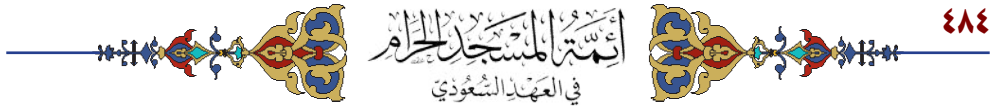 ٤٨٤
أَئِمَّةُ المَسْجِدِ الحَرَامِ
في العَهْدِ السُّعُوْدِيّ